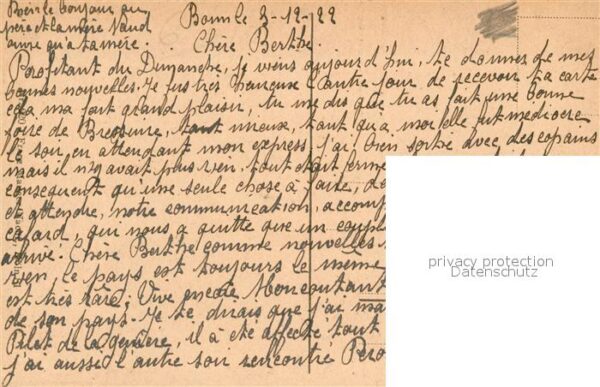 Bonn le 3-12-22
Bien le bonjour au
père et la mère Naud
ainsi qu'a ta mère.
Chère Berthe
Profitant du Dimanche, je viens aujourd'hui, te donner de mes
bonnes nouvelles. Je fus très heureux l'autre jour de recevoir ta carte
cela ma fait grand plaisir, tu me dis que tu as fait une bonne
foire de Bressuire, tant mieux, tant qu'a moi elle fut médiocre
le soir, en attendant mon express j'ai bien sortie avec des copains
mais il n'y avait plus rien, tout était fermé
consequent qu'une seule chose à faire,
et attendre, notre communication, accomp
cafard, qui nous a quitte que un coupl
arrivé. Chère Berthe comme nouvelles
rien, le pays est toujours le même
est très rare; Vive Moncoutant
de son pays. Je te dirais que j'ai
Pilet de la il à été affecté tout
j'ai aussi l'autre soir rencontré
privacy protection
Datenschutz